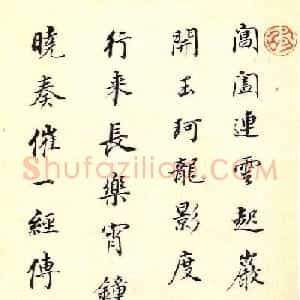 閶闔連雲起巖
開玉珂龍影度
行来長樂宵鐘
曉奏催一經傳
Shufaziliao.com